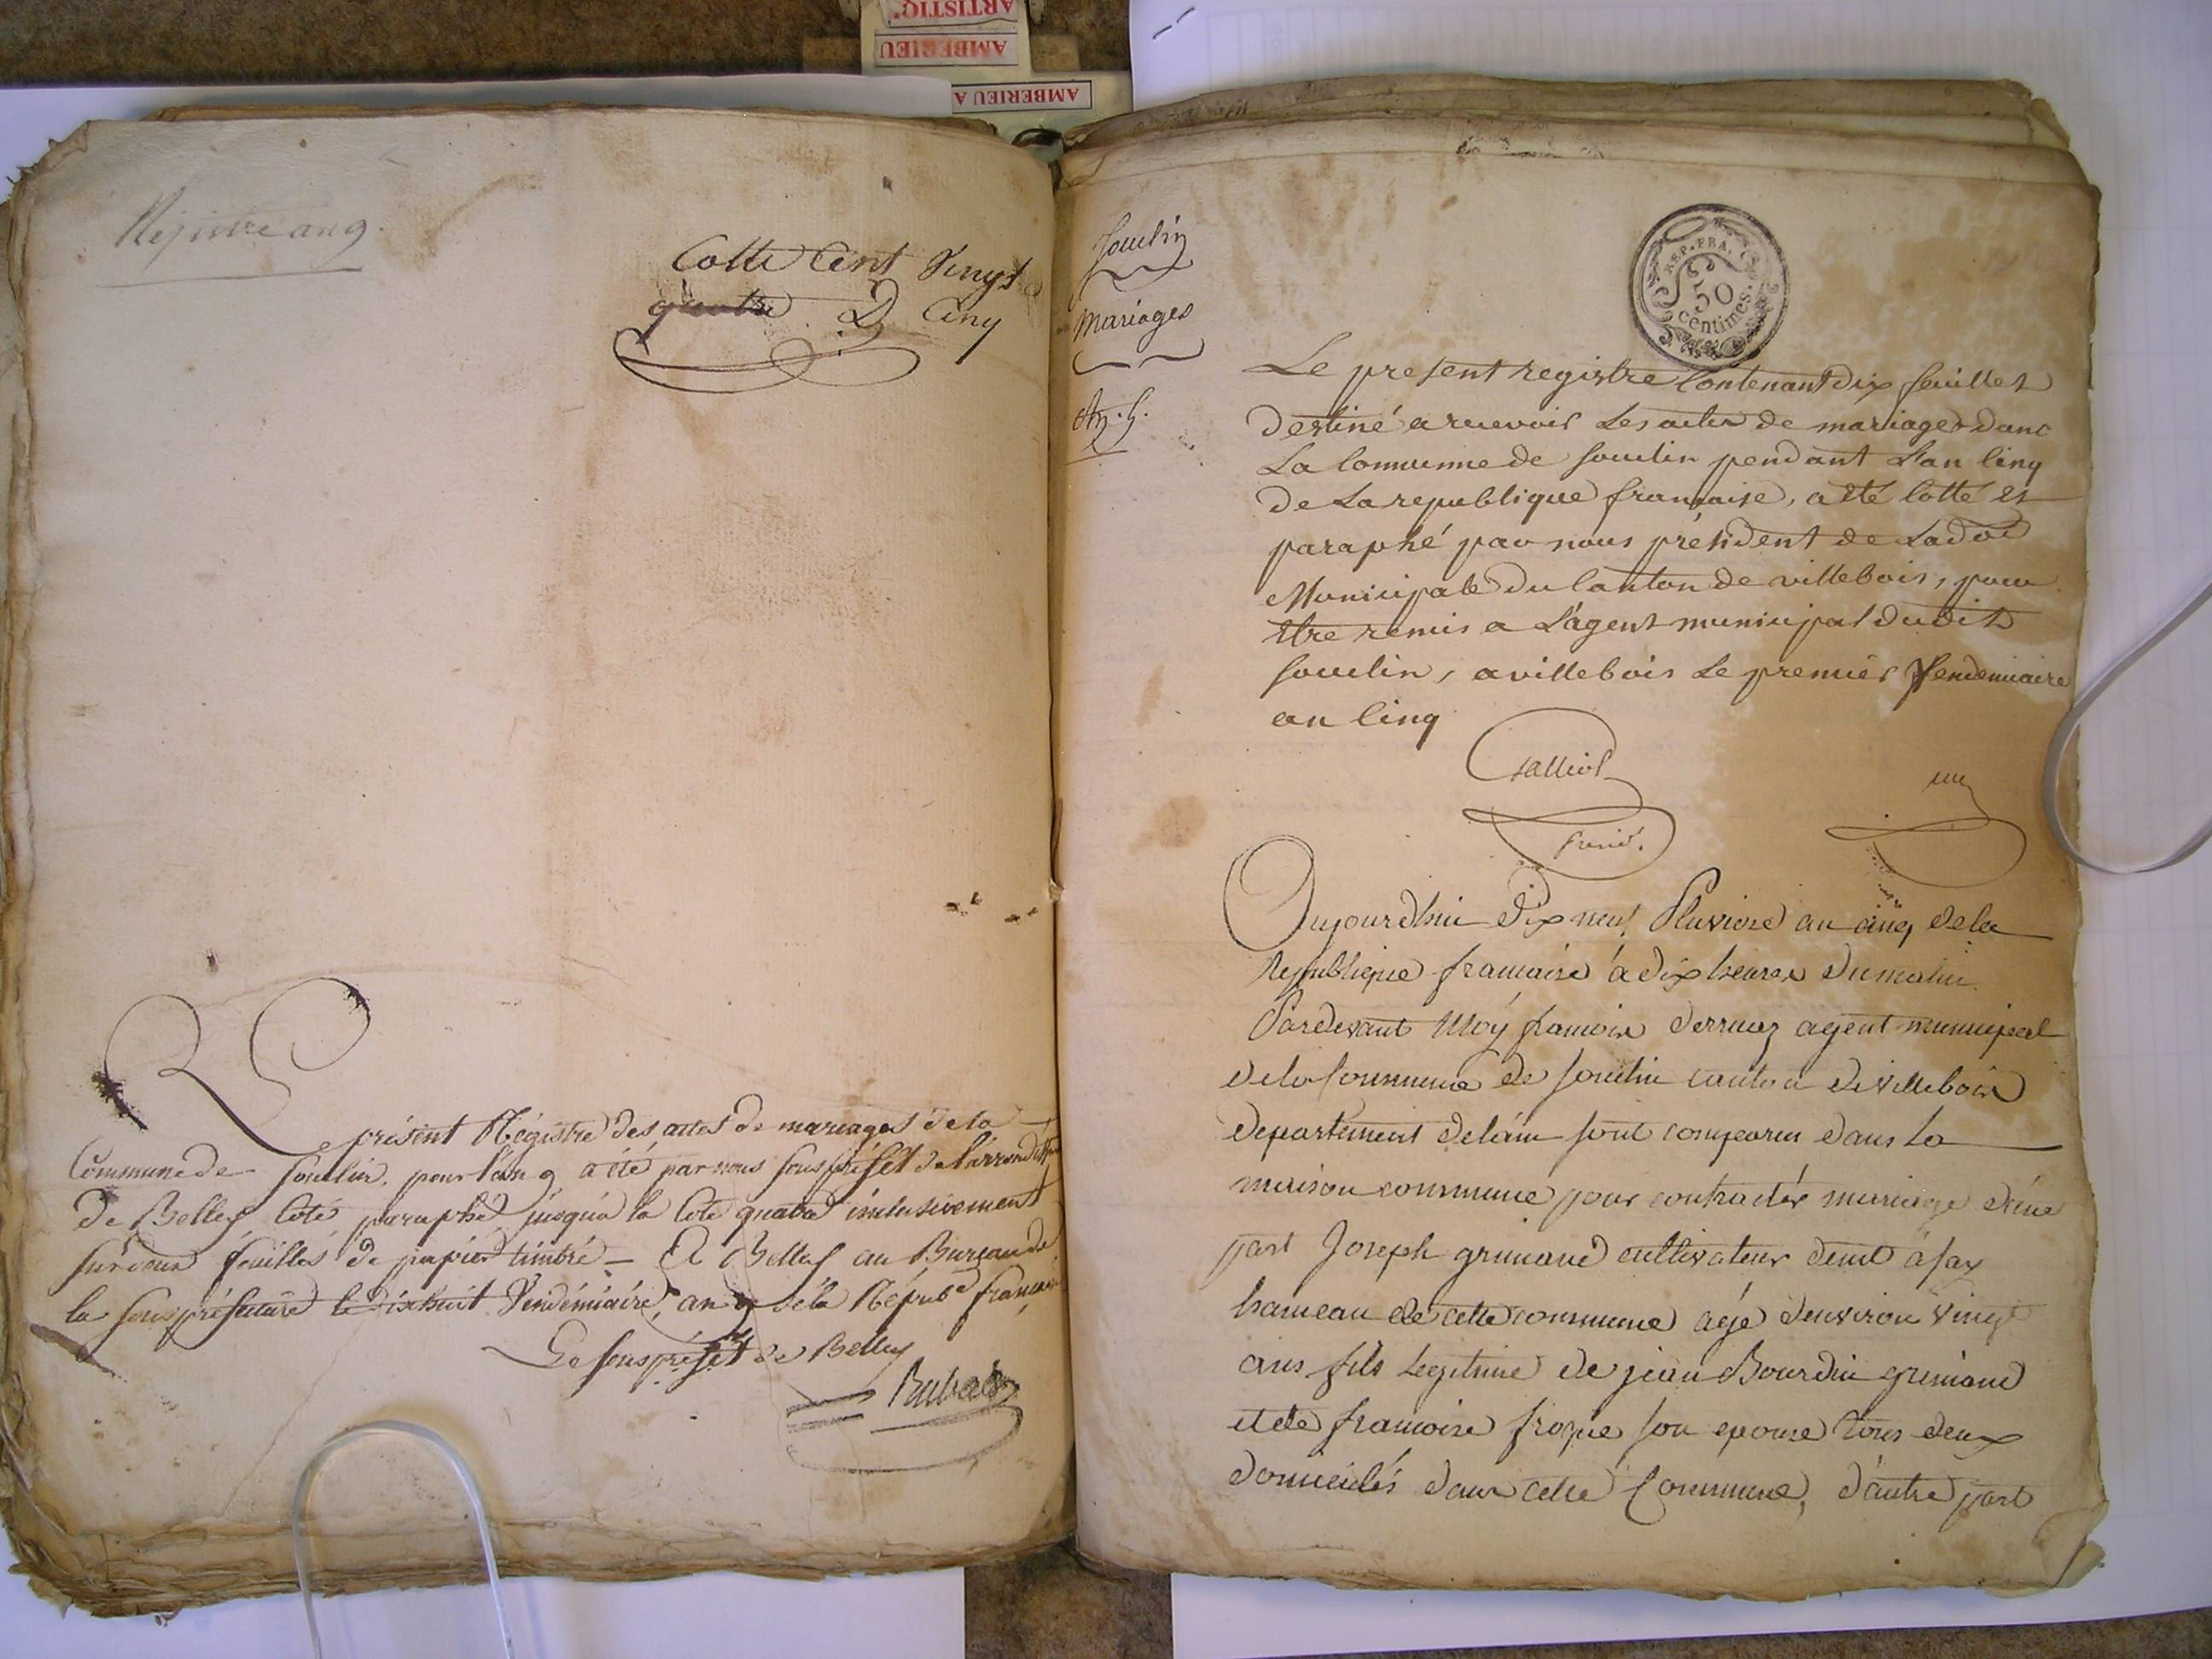 ARTISTIQ'
AMBERIEU
AMBERIEU A
Registre an 9.
Cotte Cent Vingt
quatre D Cinq
Le présent Régistre des actes de mariages de la
Commune de Souclin, pour l'an 9 a été par nous sous préfet de l'arrondist
de Belley coté paraphé jusqu'à la cote quatre inclusivement
sur deux feuilles de papier timbré — A Belley au Bureau de
la sous préfecture le dixhuit Vendémiaire, an 9 de la Répube française
Le sous préfet de Belley
Rubat
Souclin
Mariages
An. 5.
REP. FRA.
50
centimes.
Le present registre Contenant dix feuillet
destiné a recevoir Les actes de mariages dans
La Commune de Souclin pendant L'an Cinq
de La republique francaise, a eté Cotté et
paraphé par nous président de Ladon
Municipale du Canton de villebois, pour
etre remis a L'agent municipal dudit
Souclin, a villebois Le premier Vendemiaire
an Cinq
un
presid.
Aujourdhui dix neuf Pluviose an cinq de la
Republique francaise a dix heures du matin
Pardevant Moy francois derruaz agent municipal
de la Commune de Souclin canton de villebois
departement de lain sont comparus dans La
maison commune pour contracter mariage d'une
part Joseph grimand cultivateur demt a fay
hameau de cette commune agé d'environ vingt
ans fils Legitime de jean Bourdin grimand
et de francoise son epouse tous deux
domiciliés dans cette Commune, d'autre part